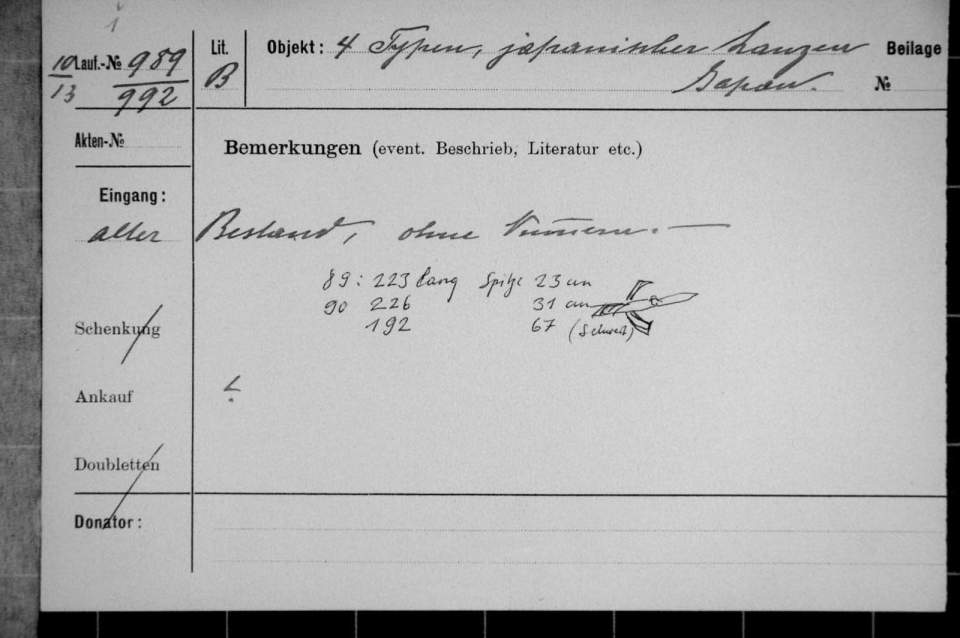 i
10/13 Lauf.-№ 989/992 Lit. B Objekt: 4 Typen, japanischer Lanzen Beilage
Japan. №
Akten-№
Bemerkungen (event. Beschrieb, Literatur etc.)
Eingang:
alter Bestand, ohne Nummern. —
89: 223 lang Spitze 23 cm
90 226 31 cm
192 67 (Schwert)
Schenkung
Ankauf
Doubletten
Donator: